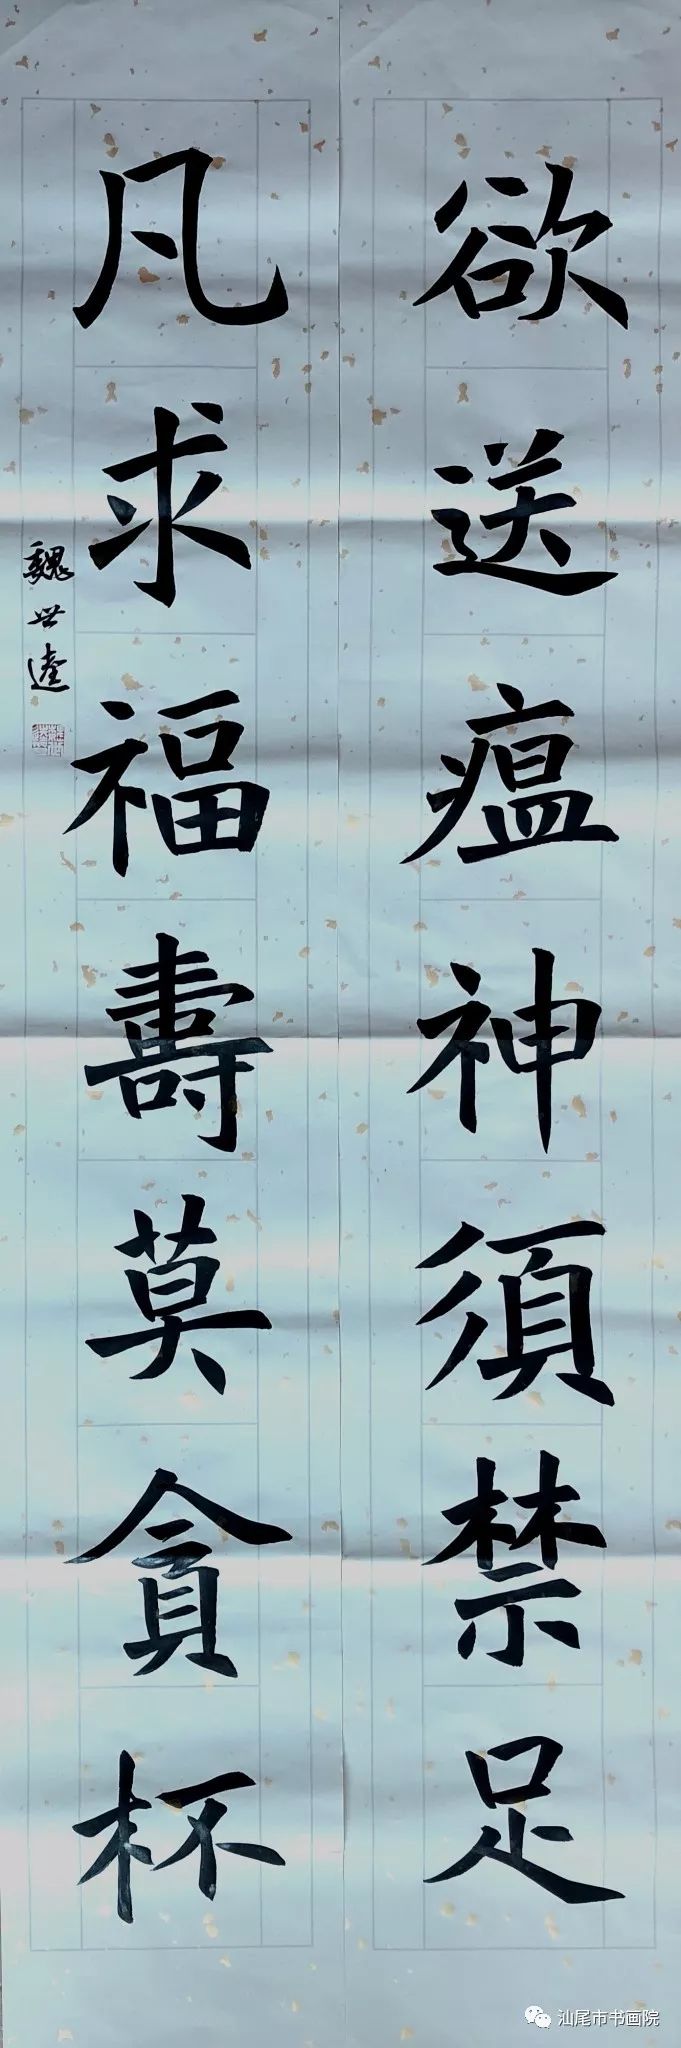 欲送瘟神須禁足
凡求福壽莫貪杯
魏世達
汕尾市书画院